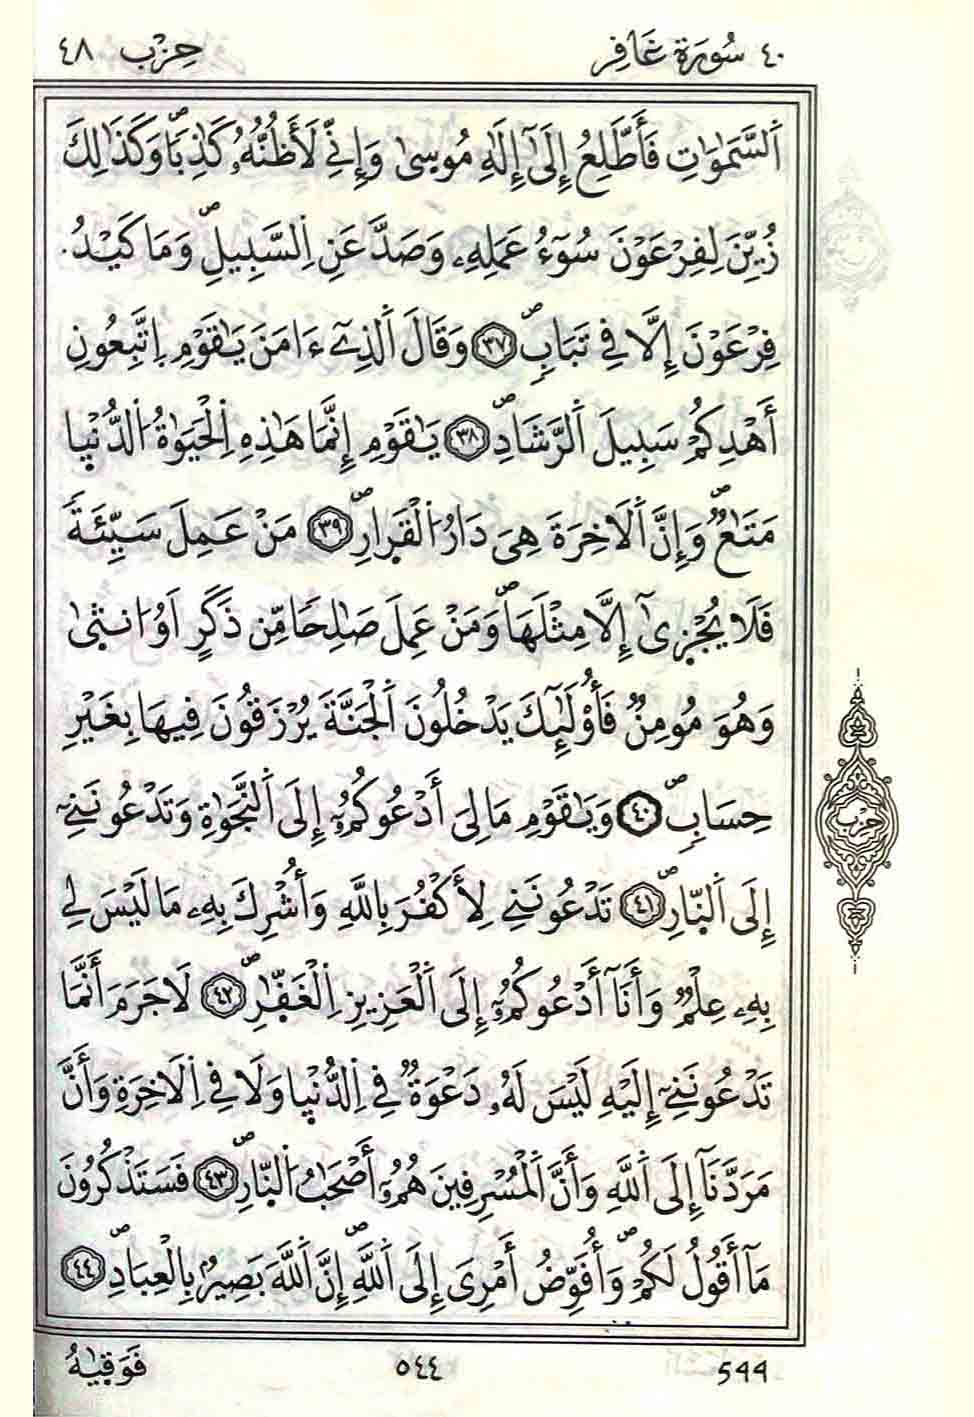 ٤٠ سُورَة غَافِر حِزْب ٤٨
اَ۬لسَّمَٰوَٰتِ فَأَطَّلِعُ إِلَىٰٓ إِلَٰهِ مُوسۭىٰ وَإِنِّے لَأَظُنُّهُۥ كَٰذِباࣰۖ وَكَذَٰلِكَ
زُيِّنَ لِفِرْعَوْنَ سُوٓءُ عَمَلِهِۦ وَصَدَّ عَنِ اِ۬لسَّبِيلِۖ وَمَا كَيْدُ
فِرْعَوْنَ إِلَّا فِے تَبَابࣲۖ ٣٧ وَقَالَ اَ۬لذِےٓ ءَامَنَ يَٰقَوْمِ اِ۪تَّبِعُونِ
أَهْدِكُمْ سَبِيلَ اَ۬لرَّشَادِۖ ٣٨ يَٰقَوْمِ إِنَّمَا هَٰذِهِ اِ۬لْحَيَوٰةُ اُ۬لدُّنْي۪ا
مَتَٰعࣱۖ وَإِنَّ اَ۬لَاخِرَةَ هِيَ دَارُ اُ۬لْقَر۪ارِۖ ٣٩ مَنْ عَمِلَ سَيِّئَةࣰ
فَلَا يُجْز۪ىٰٓ إِلَّا مِثْلَهَاۖ وَمَنْ عَمِلَ صَٰلِحاࣰ مِّن ذَكَرٍ اَوُ ا۟نث۪ىٰ
وَهُوَ مُومِنࣱ فَأُوْلَٰٓئِكَ يَدْخُلُونَ اَ۬لْجَنَّةَ يُرْزَقُونَ فِيهَا بِغَيْرِ
حِسَابࣲۖ ٤٠ وَيَٰقَوْمِ مَا لِيَ أَدْعُوكُمُۥٓ إِلَى اَ۬لنَّجَوٰةِ وَتَدْعُونَنِےٓ
إِلَى اَ۬لنّ۪ارِۖ ٤١ تَدْعُونَنِے لِأَكْفُرَ بِاللَّهِ وَأُشْرِكَ بِهِۦ مَا لَيْسَ لِے
بِهِۦ عِلْمࣱ وَأَنَآ أَدْعُوكُمُۥٓ إِلَى اَ۬لْعَزِيزِ اِ۬لْغَفّٰ۪رِۖ ٤٢ لَا جَرَمَ أَنَّمَا
تَدْعُونَنِےٓ إِلَيْهِ لَيْسَ لَهُۥ دَعْوَةࣱ فِے اِ۬لدُّنْي۪ا وَلَا فِے اِ۬لَاخِرَةِ وَأَنَّ
مَرَدَّنَآ إِلَى اَ۬للَّهِ وَأَنَّ اَ۬لْمُسْرِفِينَ هُمُۥٓ أَصْحَٰبُ اُ۬لنّ۪ارِۖ ٤٣ فَسَتَذْكُرُونَ
مَآ أَقُولُ لَكُمْۖ وَأُفَوِّضُ أَمْرِيَ إِلَى اَ۬للَّهِۖ إِنَّ اَ۬للَّهَ بَصِيرُۢ بِالْعِبَادِۖ ٤٤
544 ٥٤٤ فَوَقِيٰهُ
حِزْب